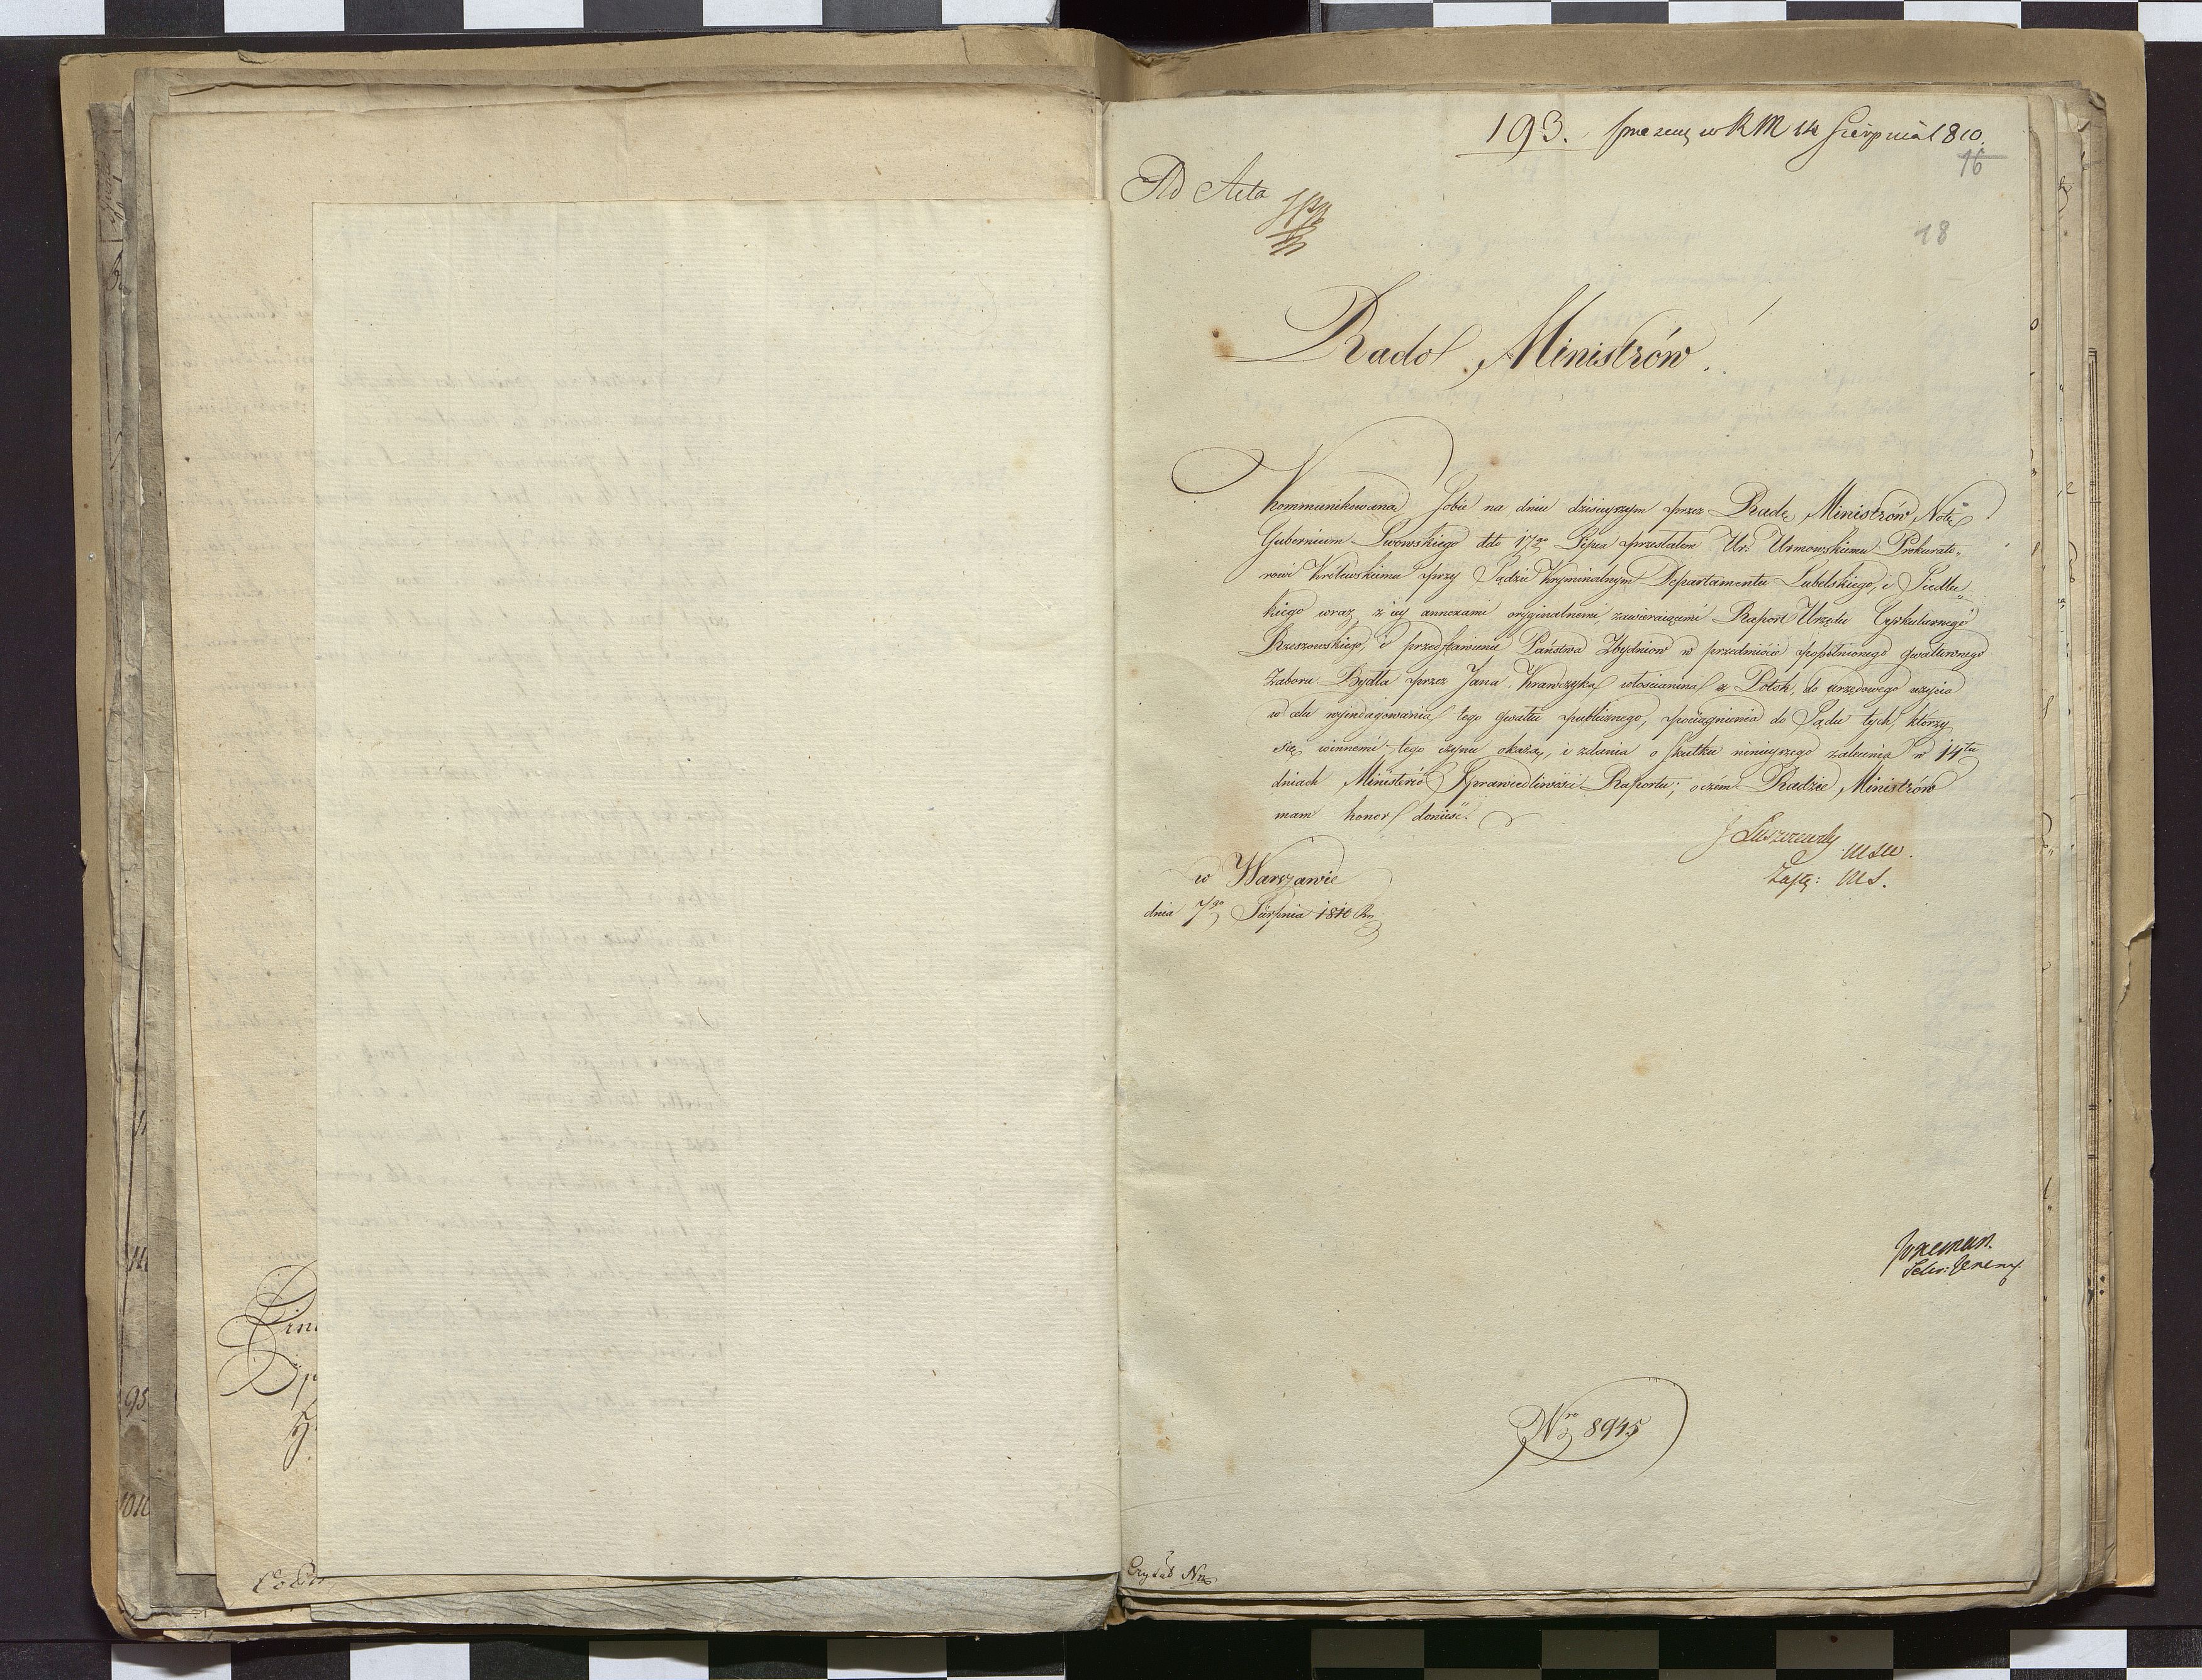 193. w RM 14 Sierpnia 1810.
16
Ad Acta
18
Rado Ministrów!
Kommunikowaną Sobie na dniu dzisieyszym przez Radę Ministrów Notę
Gubernium Lwowskiego ddo 17go Lipca przesłałem Ur: Urmowskiemu Prokurato-
rowi Królewskiemu przy Sądzie Kryminalnym Departamentu Lubelskiego, i Siedlec-
kiego wraz z iey annexami oryginalnemi zawieraiącemi Raport Urzędu Cyrkularnego
Rzeszowskiego, i przedstawienie Państwa Zbydniow w przedmiocie popełnionego gwałtownego
Zaboru Bydła przez Jana Krawczyka włościanina z Potok, do urzędowego użycia
w celu wyindagowania tego gwałtu publicznego, pociągnienia do Sądu tych, którzy
się winnemi tego czynu okażą, i zdania o skutku ninieyszego zalecenia w 14tu
dniach Ministerio Sprawiedliwości Raportu; o czém Radzie Ministrów
mam honor donieść.
J Łuszczewski MSW.
Zastę: MS.
w Warszawie
dnia 7go Sierpnia 1810 Ru
Sekr: Jeneny
Nro 8945
Czytał